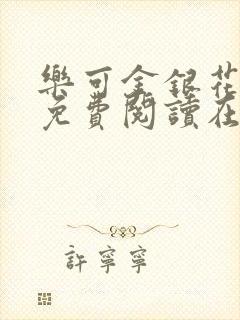 樂可金銀花
免費閱讀在
許寧寧